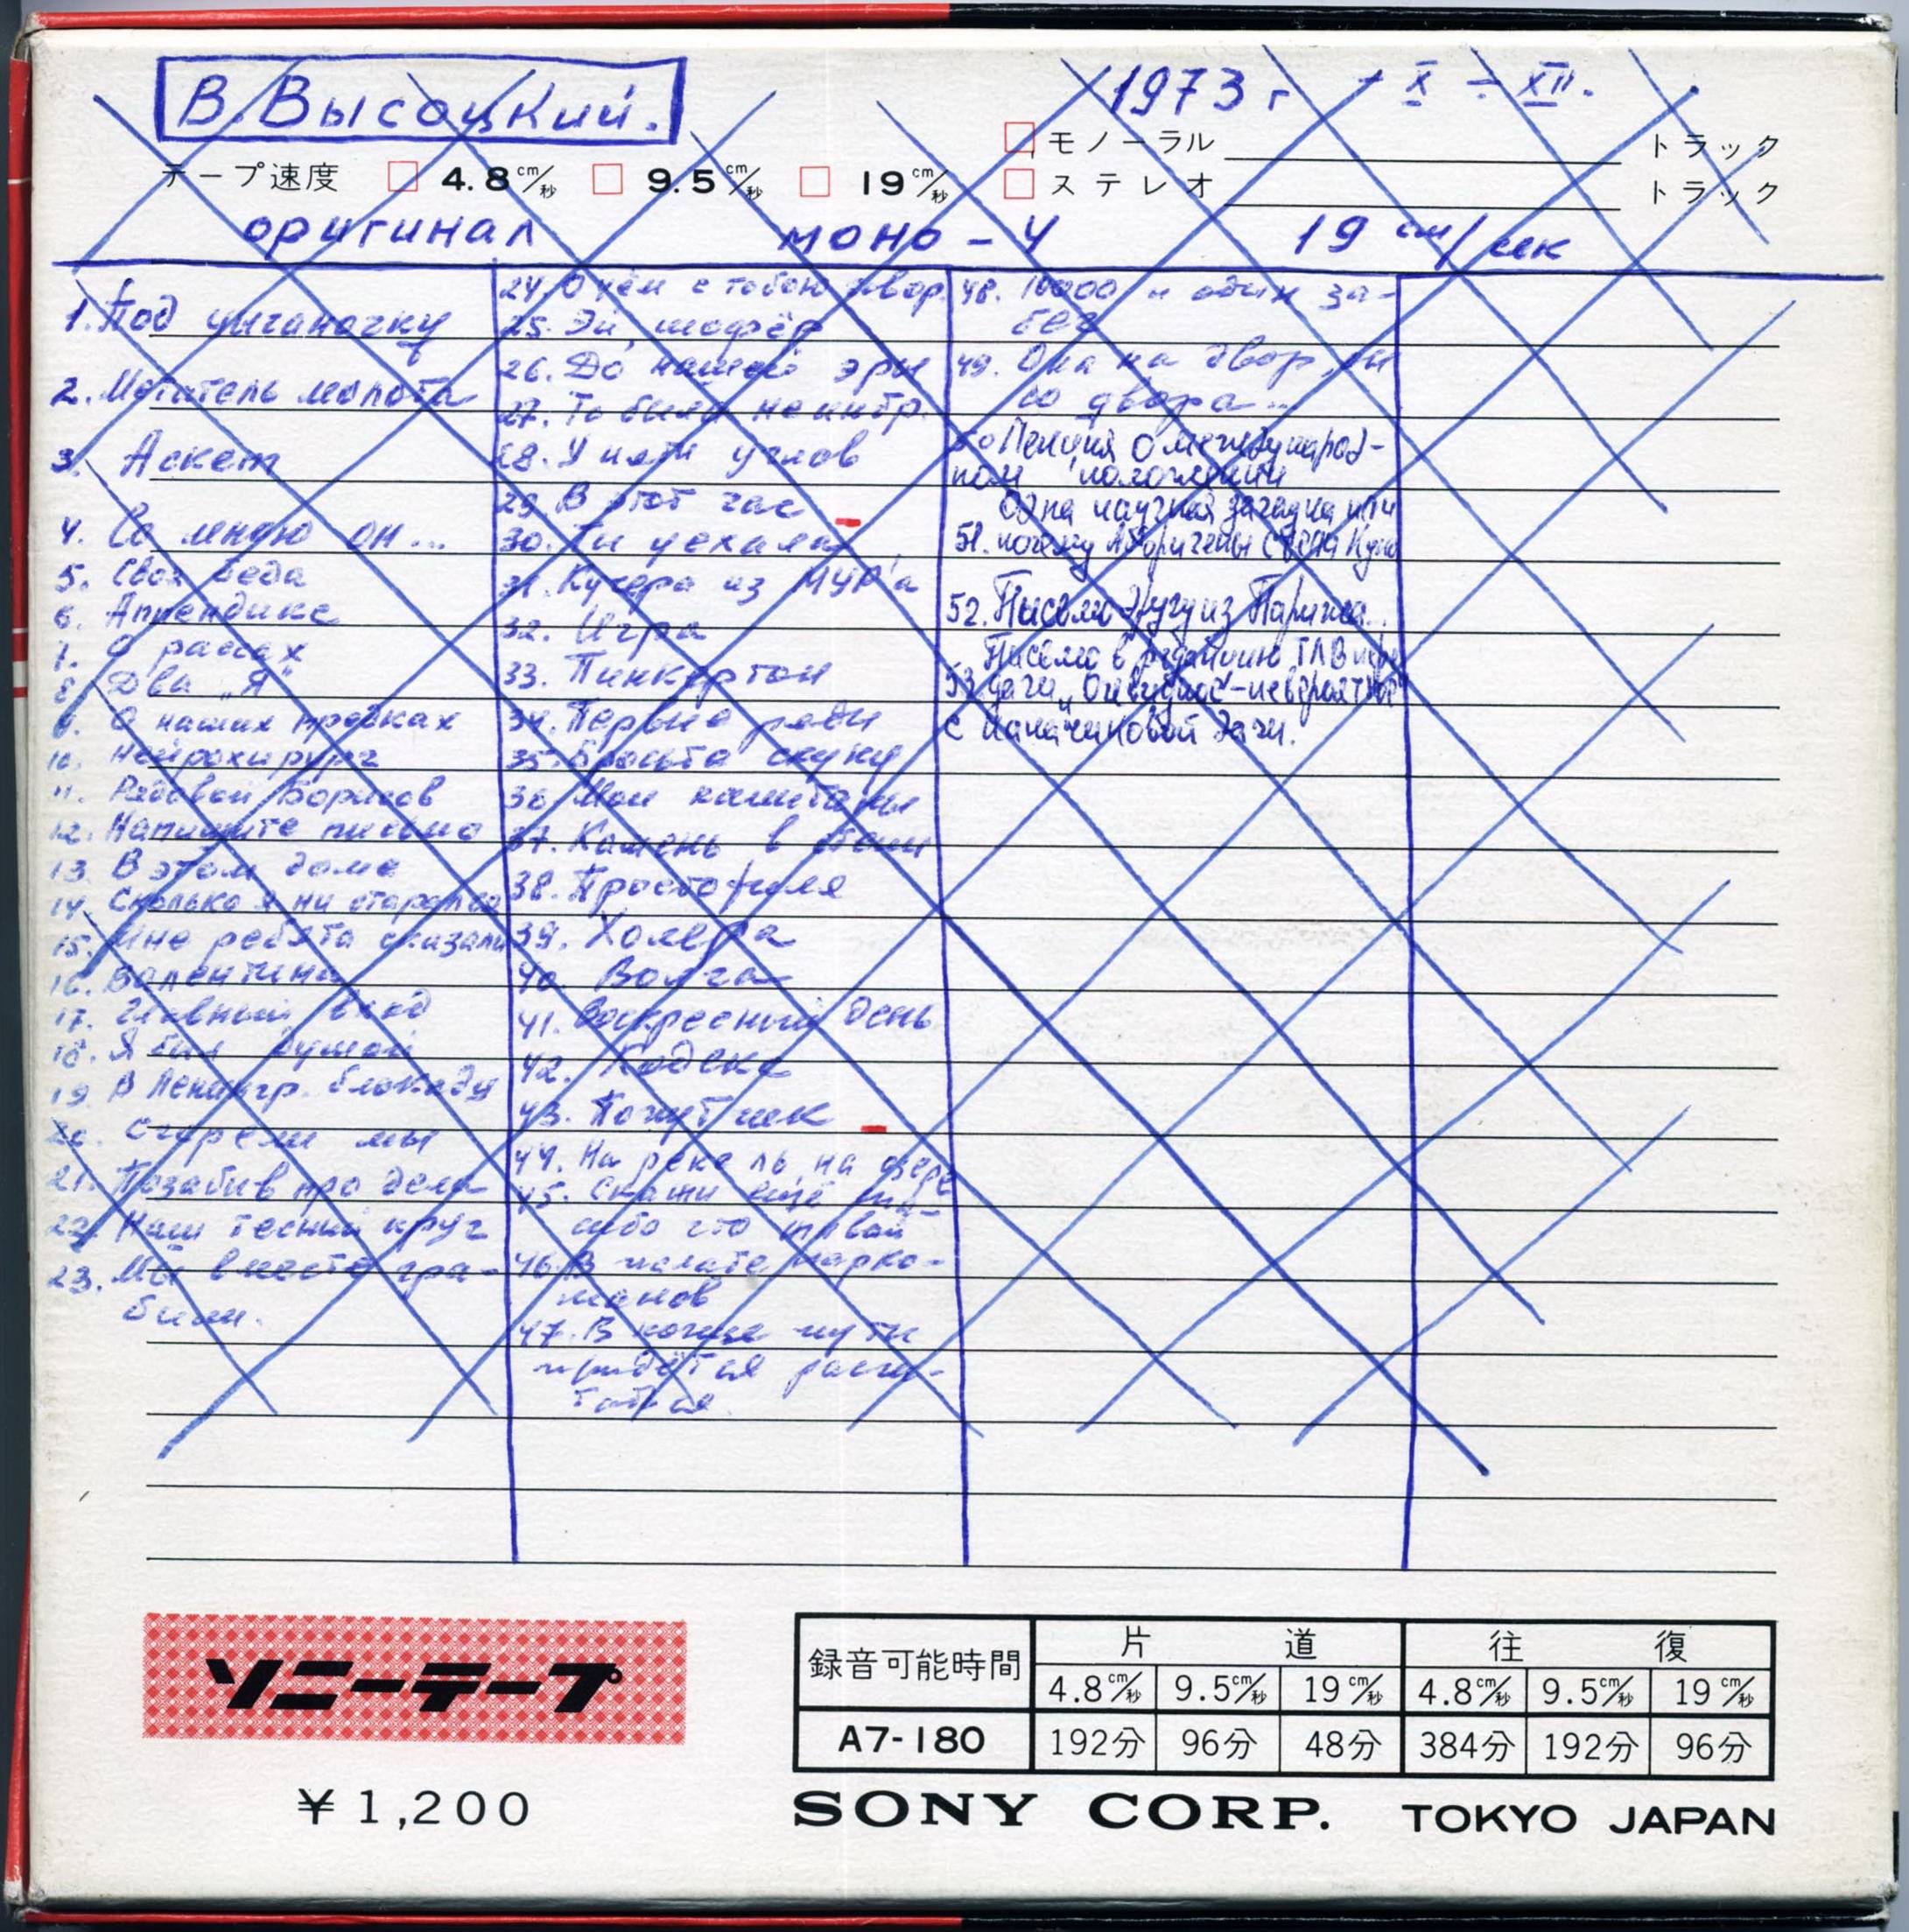 В. Высоцкий.
1973 г - X ÷ XII.
モノーラル トラック
テープ速度 4.8 cm/秒 9.5 cm/秒 19 cm/秒
ステレオ トラック
оригинал моно - 4 19 см/сек
1. Под цыганочку
2. Метатель молота
3. Аскет
4. Со мною он...
5. Своя беда
6. Аппендикс
7. О расах
8. Два „Я"
9. О наших тройках
10. Нейрохирург
11. Рядовой Борисов
12. Напишите письмо
13. В этом доме
14. Сколько я ни старался
15. Мне ребята сказали
16. Валентина
17. Главный вход
18. Я был душой
19. В Ленингр. блокаду
20. Сгорели мы
21. Позабыв про дела
22. Наш тесный круг
23. Мы вместе гра-
били.
24. О чём с тобою говор.
25. Эй, шофёр
26. До нашей эры
27. То была не интр.
28. У пяти углов
29. В этот час
30. Ты уехала
31. Кучера из МУР'а
32. Игра
33. Пинкертон
34. Первые ряды
35. Бросьте скуку
36. Мои капитаны
37. Камень в
38. Простофиля
39. Холера
40. Волга
41. Воскресный день
42. Кодекс
43. Попутчик
44. На реке ль, на озере
45. Скажи ещё спа-
сибо что живой
46. В палате нарко-
манов
47. В конце пути
придётся рассчи-
таться
48. 10000 и один за-
бег
49. Она на двор, он
со двора...
50 Лекция о международ-
ном положении
Одна научная загадка или
51. почему Аборигены съели Кука
52. Письмо другу из Парижа..
Письмо в редакцию пере
53. дачи „Очевидное-невероятное"
с Канатчиковой дачи.
ソニーテープ
¥1,200
録音可能時間 片道 往復
4.8 cm/秒 9.5 cm/秒 19 cm/秒 4.8 cm/秒 9.5 cm/秒 19 cm/秒
A7-180 192分 96分 48分 384分 192分 96分
SONY CORP. TOKYO JAPAN